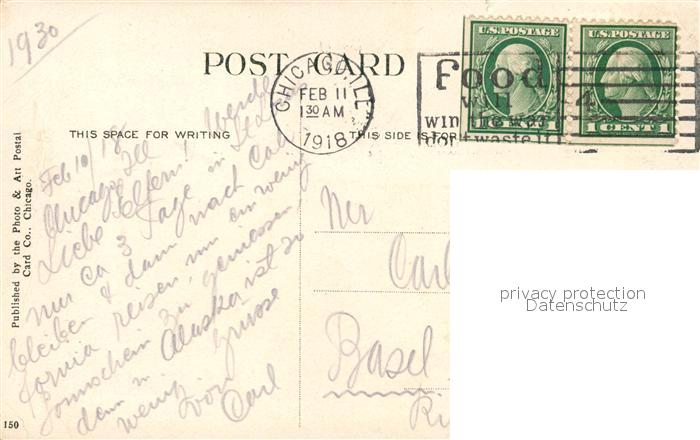 1930
POST CARD
CHICAGO, ILL.
FEB 11
1 30 AM
1918
U.S. POSTAGE
1 CENT 1
U.S. POSTAGE
1 CENT 1
Food
will
win the war
don't waste it
THIS SPACE FOR WRITING
THIS SIDE IS FOR
Published by the Photo & Art Postal
Card Co., Chicago.
150
Feb 10/18
Chicago Ill
Liebe Eltern! Werde
nur ca 3 Tage in St Louis
bleiben & dann nach Cali
fornia reisen, um ein wenig
Sonnschein zu geniessen,
denn in Alaska ist so
wenig
Grüsse
von
Carl
Carl
Basel
privacy protection
Datenschutz